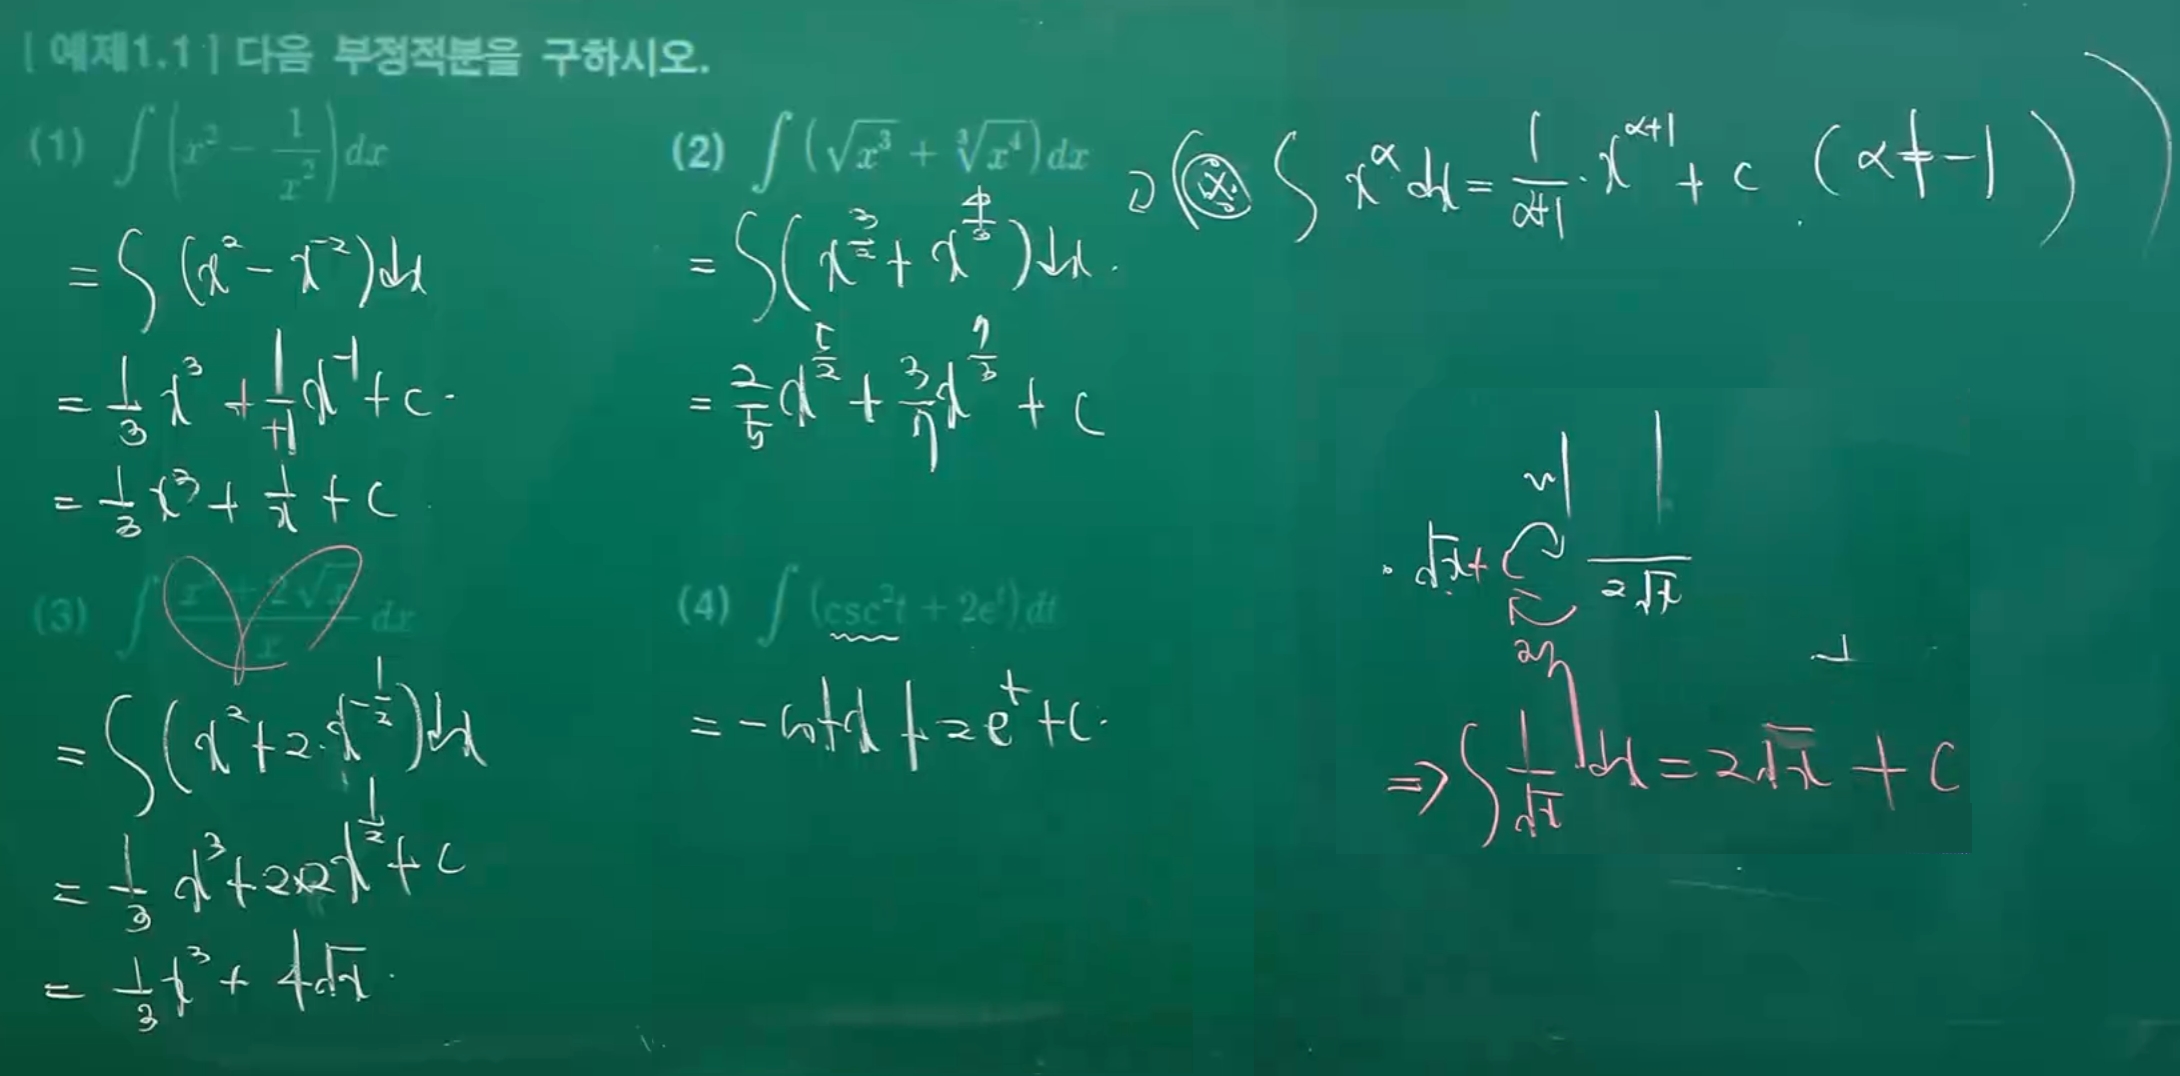 [예제1.1] 다음 부정적분을 구하시오.
(1) ∫(x² − 1/x²)dx
= ∫(x² − x⁻²)dx
= 1/3 x³ + 1/+1 x⁻¹ + c.
= 1/3 x³ + 1/x + c
(2) ∫(√x³ + ∛x⁴)dx
= ∫(x^(3/2) + x^(4/3))dx.
= 2/5 x^(5/2) + 3/7 x^(7/3) + c
∫ x^α dx = 1/(α+1) · x^(α+1) + c (α ≠ −1)
(3) ∫ (x³ + 2√x)/x dx
= ∫(x² + 2·x^(−1/2))dx
= 1/3 x³ + 2×2x^(1/2) + c
= 1/3 x³ + 4√x.
(4) ∫(csc²t + 2eᵗ)dt
= −cotx + 2eᵗ + c.
· √x + c 1/(2√x)
미
적
⇒ ∫ 1/√x dx = 2√x + c